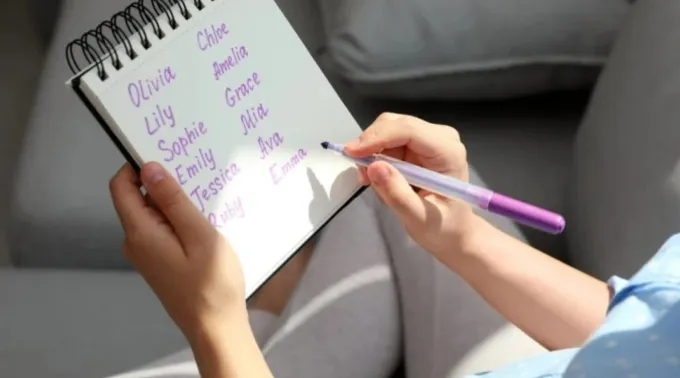 Olivia
Lily
Sophie
Emily
Jessica
Ruby
Chloe
Amelia
Grace
Mia
Ava
Emma